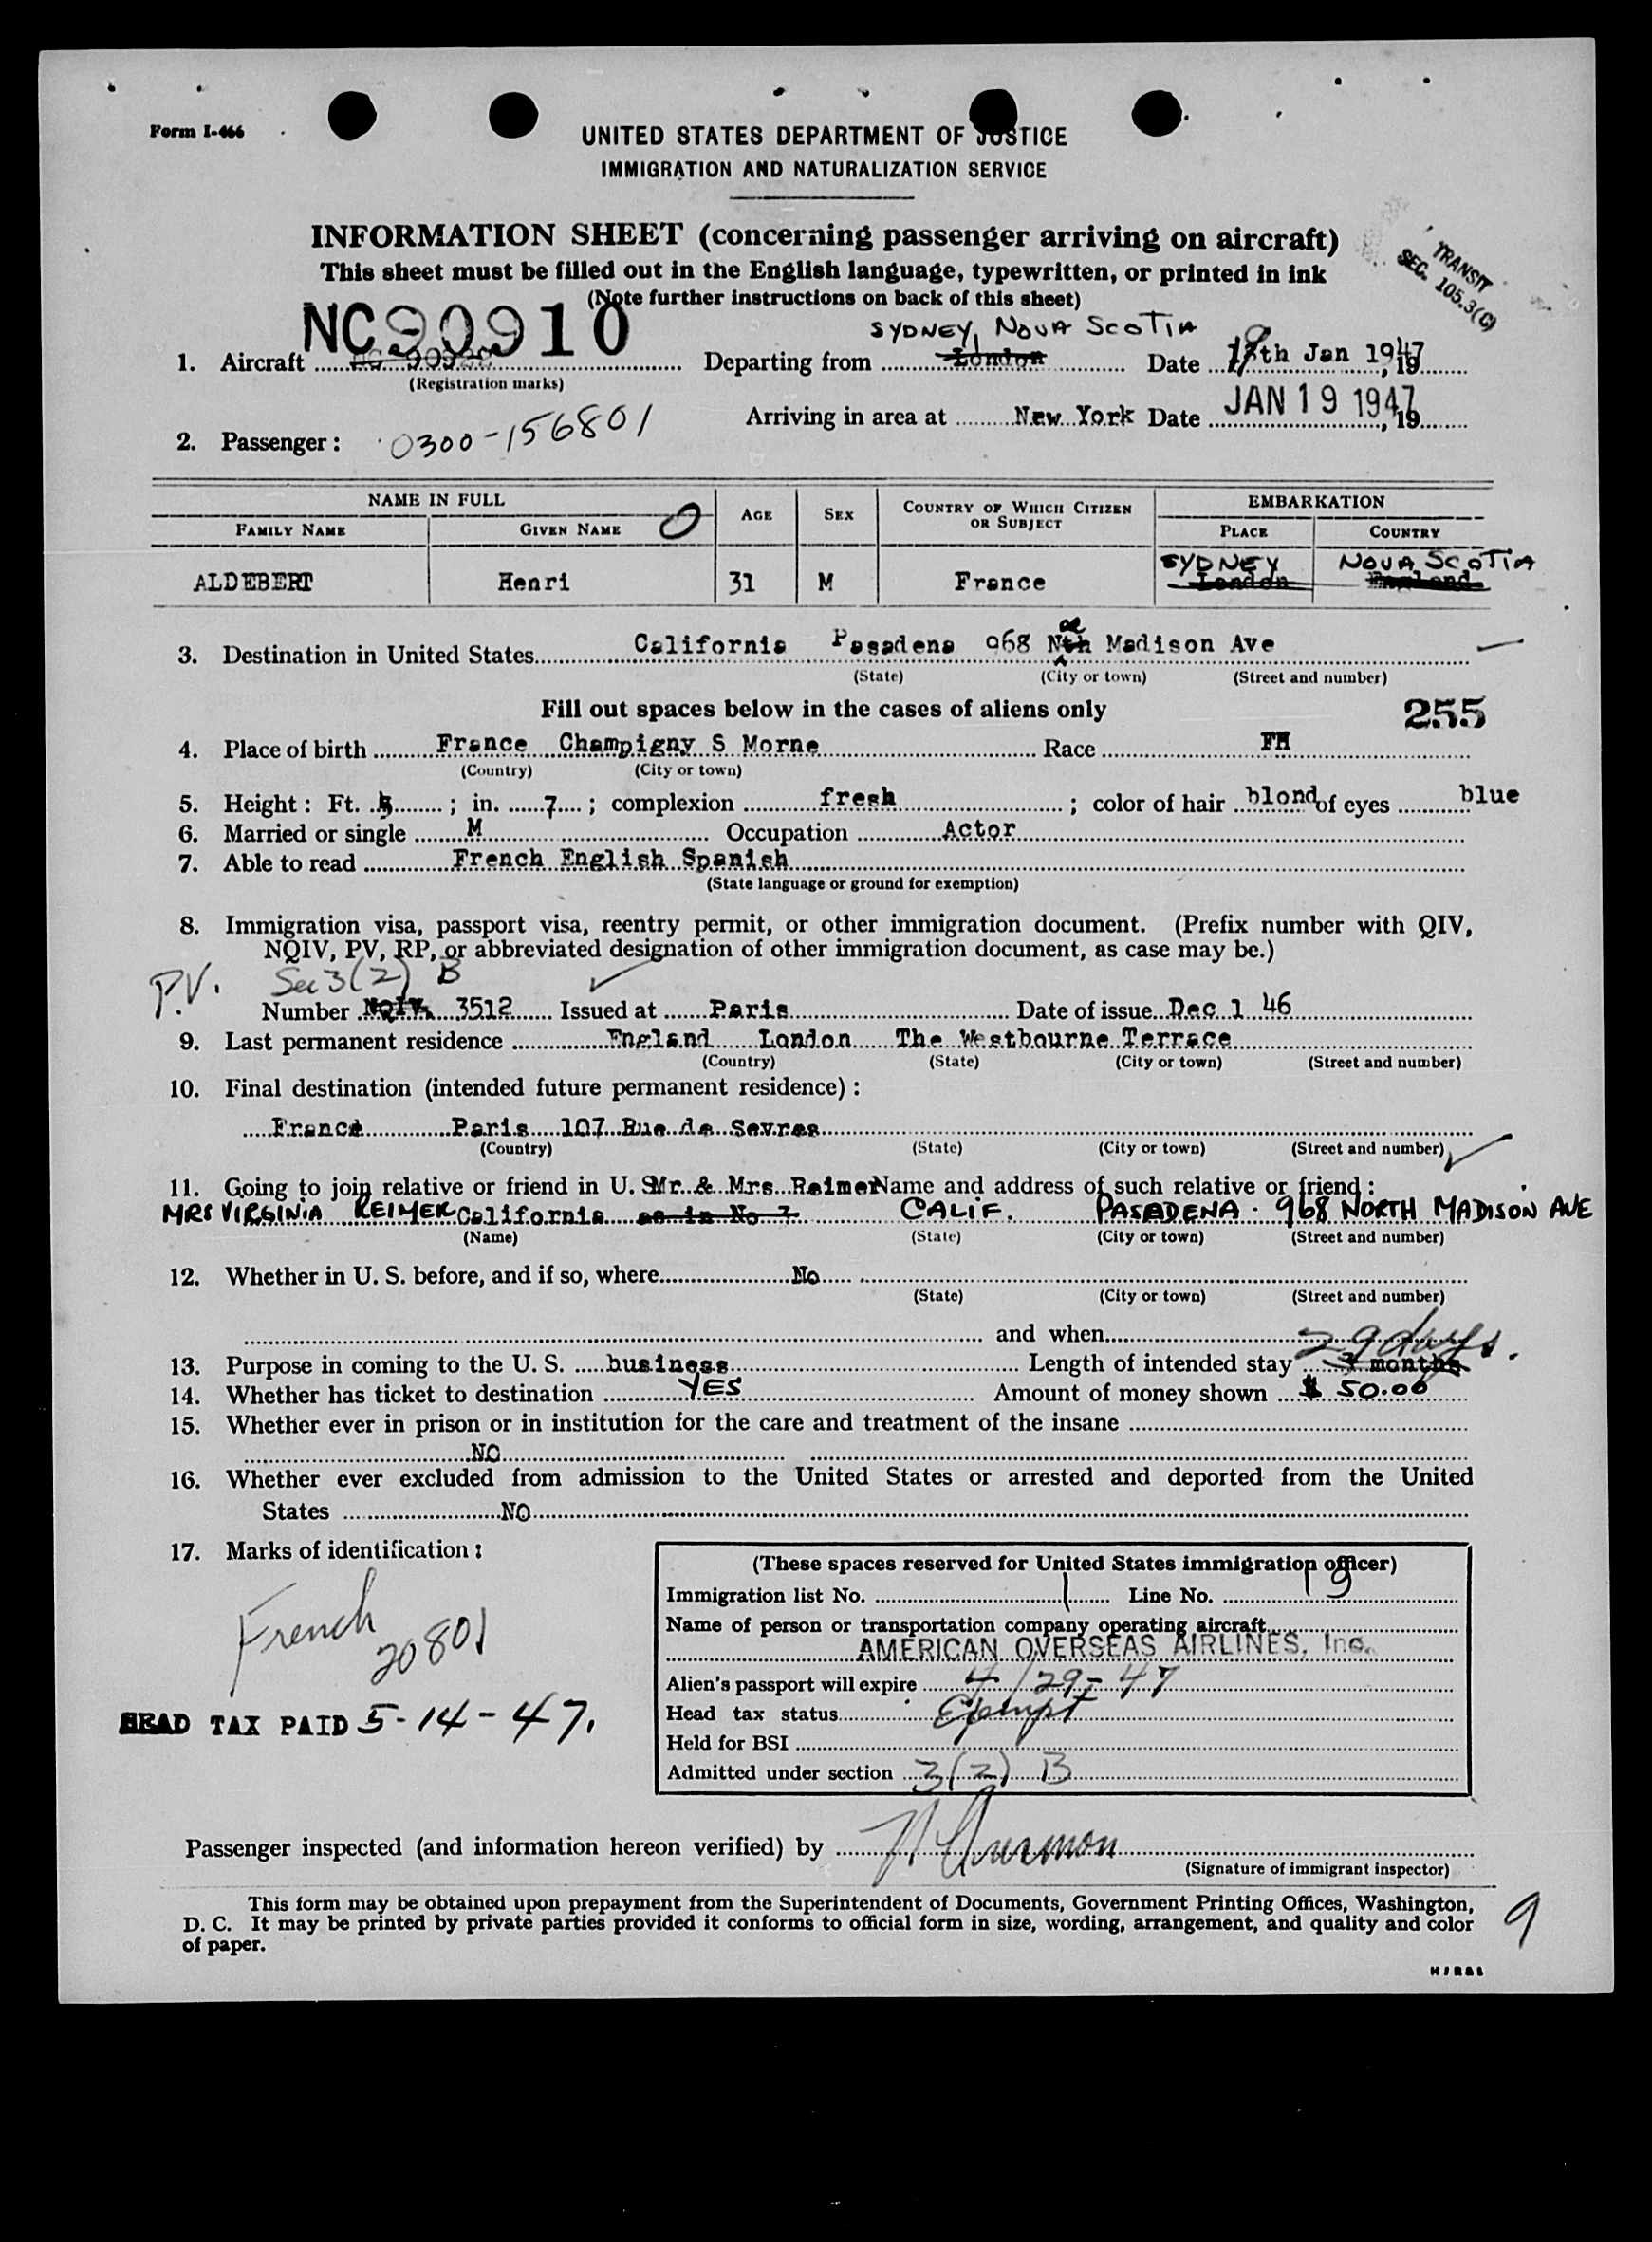 Form I-466
UNITED STATES DEPARTMENT OF JUSTICE
IMMIGRATION AND NATURALIZATION SERVICE
INFORMATION SHEET (concerning passenger arriving on aircraft)
This sheet must be filled out in the English language, typewritten, or printed in ink
(Note further instructions on back of this sheet)
TRANSIT
SEC. 105.3(C)
NC90910
SYDNEY, NOVA SCOTIA
1. Aircraft Departing from London Date 18th Jan 1947, 19
(Registration marks)
Arriving in area at New York Date JAN 19 1947, 19
2. Passenger: 0300-156801
NAME IN FULL AGE SEX COUNTRY OF WHICH CITIZEN OR SUBJECT EMBARKATION
FAMILY NAME GIVEN NAME PLACE COUNTRY
SYDNEY NOVA SCOTIA
ALDEBERT Henri 31 M France London England
3. Destination in United States California Pasadena 968 Nth Madison Ave
(State) (City or town) (Street and number)
Fill out spaces below in the cases of aliens only
255
4. Place of birth France Champigny S Morne Race FH
(Country) (City or town)
5. Height: Ft. 5; in. 7; complexion fresh; color of hair blond of eyes blue
6. Married or single M Occupation Actor
7. Able to read French English Spanish
(State language or ground for exemption)
8. Immigration visa, passport visa, reentry permit, or other immigration document. (Prefix number with QIV,
NQIV, PV, RP, or abbreviated designation of other immigration document, as case may be.)
P.V. Sec 3(2) B
Number NQIV. 3512 Issued at Paris Date of issue Dec 1 46
9. Last permanent residence England London The Westbourne Terrace
(Country) (State) (City or town) (Street and number)
10. Final destination (intended future permanent residence):
France Paris 107 Rue de Sevres
(Country) (State) (City or town) (Street and number)
11. Going to join relative or friend in U. S. Mr. & Mrs. Reimer Name and address of such relative or friend:
MRS VIRGINIA REIMER California as in No 3 CALIF. PASADENA . 968 NORTH MADISON AVE
(Name) (State) (City or town) (Street and number)
12. Whether in U. S. before, and if so, where No
(State) (City or town) (Street and number)
and when
29 days.
13. Purpose in coming to the U. S. business Length of intended stay 3 months
14. Whether has ticket to destination YES Amount of money shown $ 50.00
15. Whether ever in prison or in institution for the care and treatment of the insane
NO
16. Whether ever excluded from admission to the United States or arrested and deported from the United
States NO
17. Marks of identification:
French
20801
HEAD TAX PAID 5-14-47.
(These spaces reserved for United States immigration officer)
Immigration list No. 1 Line No. 19
Name of person or transportation company operating aircraft
AMERICAN OVERSEAS AIRLINES, Inc.
Alien's passport will expire 4/29-47
Head tax status Exempt
Held for BSI
Admitted under section 3(2) B
Passenger inspected (and information hereon verified) by
(Signature of immigrant inspector)
This form may be obtained upon prepayment from the Superintendent of Documents, Government Printing Offices, Washington,
D. C. It may be printed by private parties provided it conforms to official form in size, wording, arrangement, and quality and color
of paper.
9